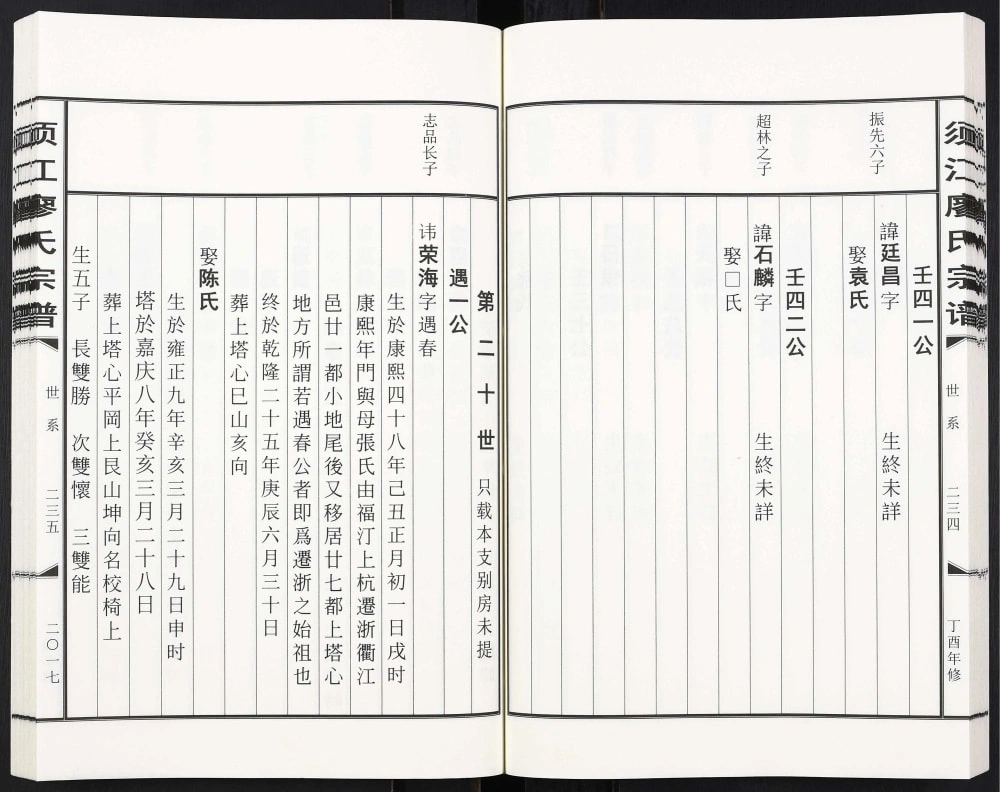 须江廖氏宗谱
世系
二三四
丁酉年修
壬四一公
振先六子
諱廷昌字 生終未詳
娶袁氏
壬四二公
超林之子
諱石麟字 生終未詳
娶□氏
第二十世 只载本支别房未提
遇一公
志品长子
讳荣海字遇春
生於康熙四十八年己丑正月初一日戌时
康熙年門與母張氏由福汀上杭遷浙衢江
邑廿一都小地尾後又移居廿七都上塔心
地方所謂若遇春公者即爲遷浙之始祖也
终於乾隆二十五年庚辰六月三十日
葬上塔心巳山亥向
娶陈氏
生於雍正九年辛亥三月二十九日申时
塔於嘉庆八年癸亥三月二十八日
葬上塔心平岡上艮山坤向名校椅上
生五子 長雙勝 次雙懷 三雙能
须江廖氏宗谱
世系
二三五
二〇一七